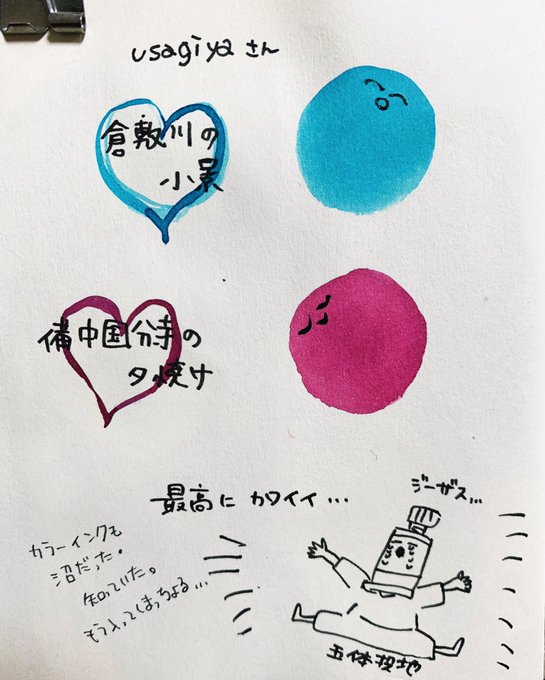 usagiyaさん
倉敷川の
小景
備中国分寺の
夕焼け
最高に カワイイ…
ジーザス…
カラーインクも
沼だった。
知っていた。
もう入ってしまっちょる…
五体投地